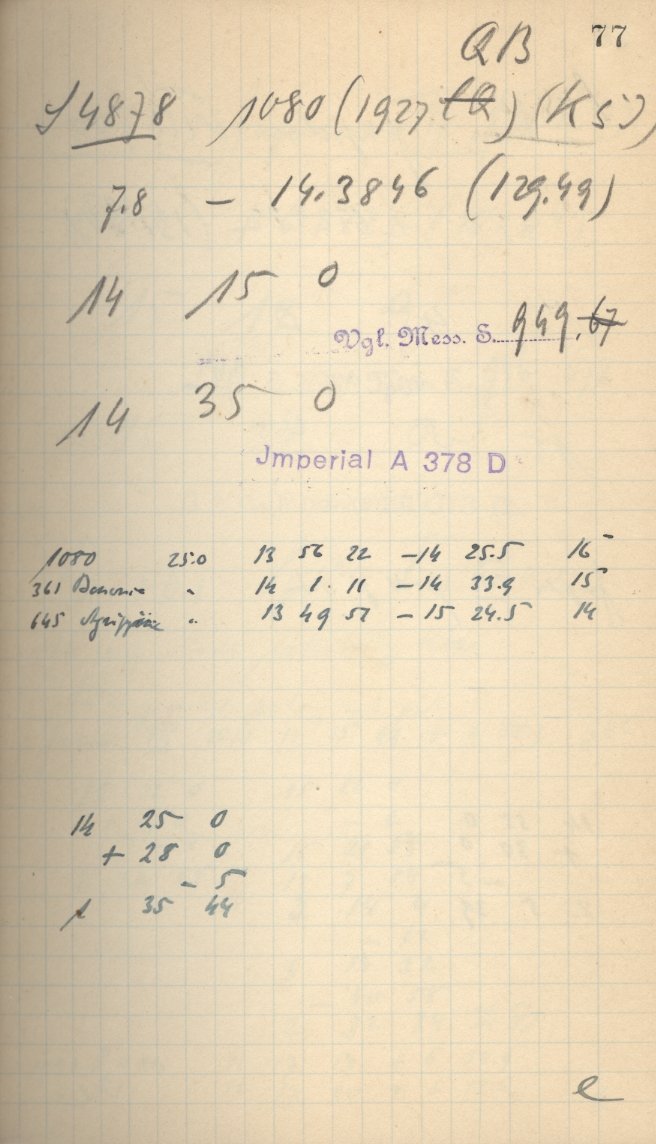 QB 77
J4878 1080 (1927 tQ) (K53)
7.8 – 14.3846 (129.49)
14 15 0
Vgl. Mess. S. 949,67
14 35 0
Jmperial A 378 D
1080 25.0 13 56 22 –14 25.5 16
361 Bononia " 14 1 11 –14 33.9 15
645 Agrippina " 13 49 57 –15 24.5 14
14 25 0
+ 28 0
– 5
1 35 44
e